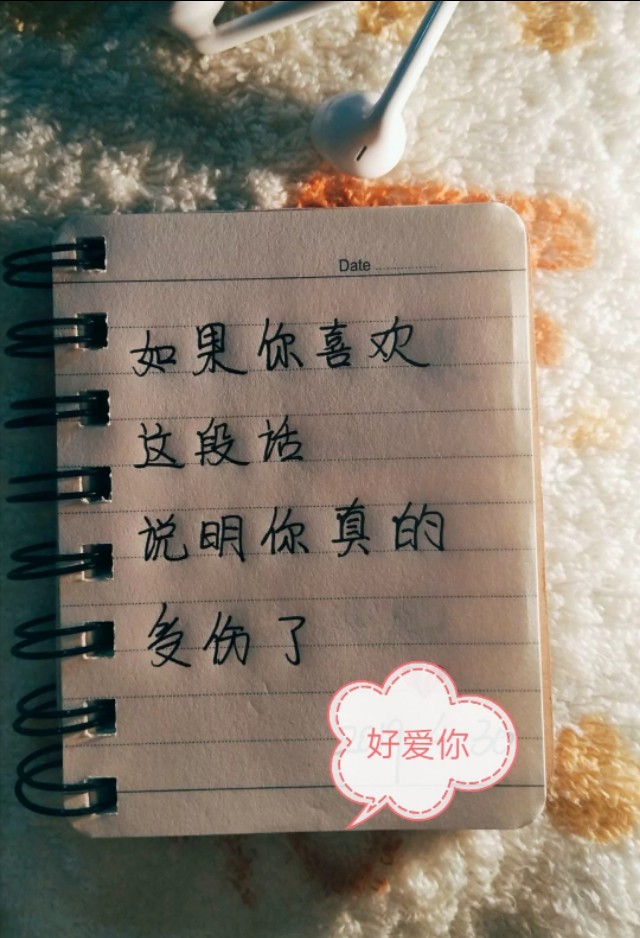 Date
如果你喜欢
这段话
说明你真的
受伤了
好爱你